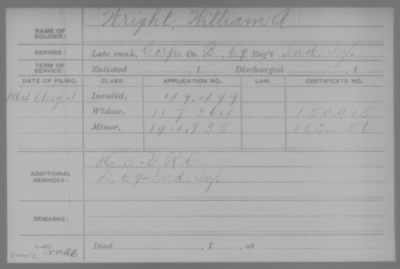 NAME OF SOLDIER: Wright, William A
SERVICE: Late rank, Corpl Co. B, 69 Reg't Ind. Inf.
TERM OF SERVICE: Enlisted , 1 Discharged , 1
DATE OF FILING. CLASS. APPLICATION NO. LAW. CERTIFICATE NO.
1864 Invalid, 49,499
Widow, 117364
Minor, 194,938
ADDITIONAL SERVICES:
D, 69 Ind. Inf.
REMARKS:
Died , 1 , at